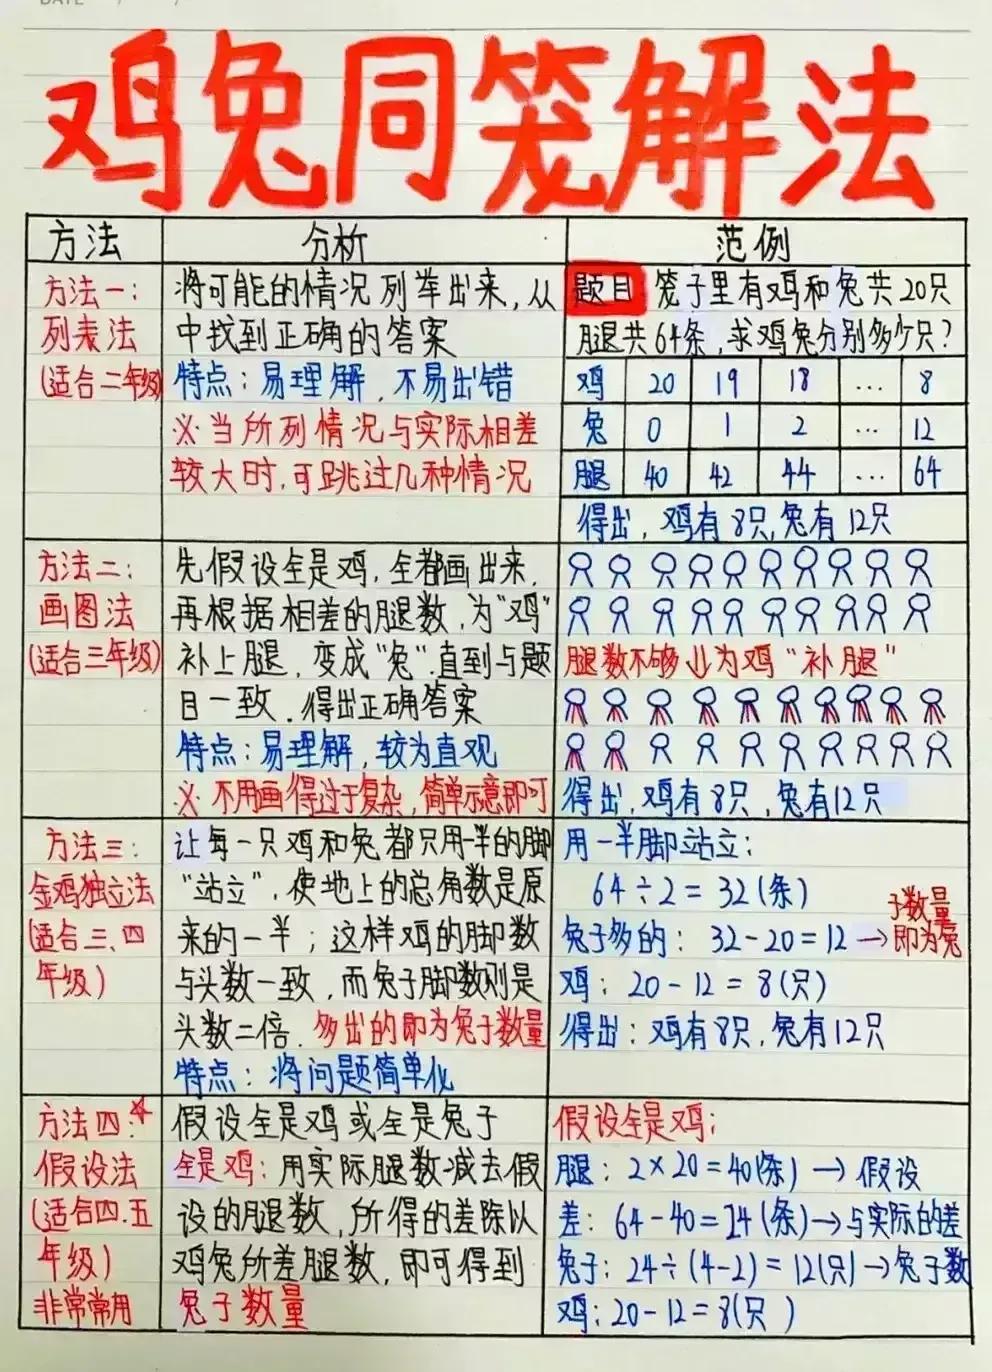 DATE / /
鸡兔同笼解法
方法
分析
范例
方法一:
列表法
(适合二年级)
将可能的情况列举出来,从
中找到正确的答案
特点:易理解,不易出错
※当所列情况与实际相差
较大时,可跳过几种情况
题目 笼子里有鸡和兔共20只
腿共64条,求鸡兔分别多少只?
鸡 20 19 18 … 8
兔 0 1 2 … 12
腿 40 42 44 … 64
得出,鸡有8只,兔有12只
方法二:
画图法
(适合三年级)
先假设全是鸡,全都画出来,
再根据相差的腿数,为"鸡"
补上腿,变成"兔".直到与题
目一致.得出正确答案
特点:易理解,较为直观
※不用画得过于复杂,简单示意即可
腿数不够↓为鸡"补腿"
得出,鸡有8只,兔有12只
方法三:
金鸡独立法
(适合三、四
年级)
让每一只鸡和兔都只用一半的脚
"站立",使地上的总角数是原
来的一半;这样鸡的脚数
与头数一致,而兔子脚数则是
头数二倍.多出的即为兔子数量
特点:将问题简单化
用一半脚站立:
64÷2=32(条)
兔子多的:32-20=12→即为兔
子数量
鸡:20-12=8(只)
得出:鸡有8只,兔有12只
方法四:☆
假设法
(适合四.五
年级)
非常常用
假设全是鸡或全是兔子
全是鸡:用实际腿数减去假
设的腿数,所得的差除以
鸡兔所差腿数,即可得到
兔子数量
假设全是鸡:
腿:2×20=40(条)→假设
差:64-40=24(条)→与实际的差
兔子:24÷(4-2)=12(只)→兔子数
鸡:20-12=8(只)